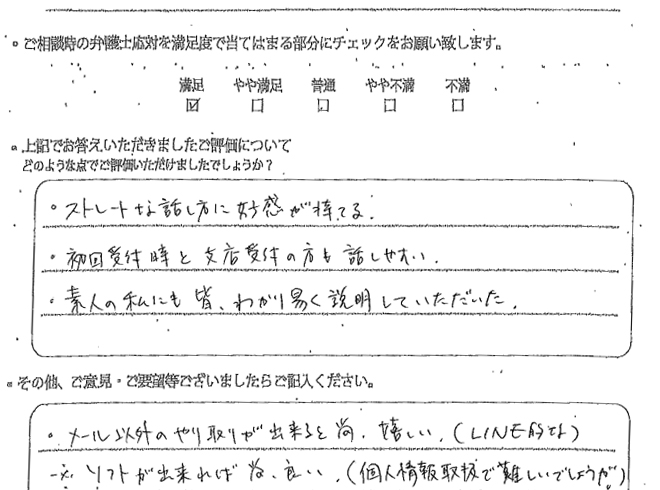 。ご相談時の弁護士応対を満足度で当てはまる部分にチェックをお願い致します。
満足 やや満足 普通 やや不満 不満
☑ □ □ □ □
。上記でお答えいただきましたご評価について
どのような点でご評価いただけましたでしょうか?
・ストレートな話し方に好感が持てる.
・初回受付時と支店受付の方も話しやすい.
・素人の私にも皆、わかり易く説明していただいた.
。その他、ご意見・ご要望等ございましたらご記入ください。
・メール以外のやり取りが出来ると尚、嬉しい. (LINE的な)
ソフトが出来れば尚、良い. (個人情報取扱で難しいでしょうが)